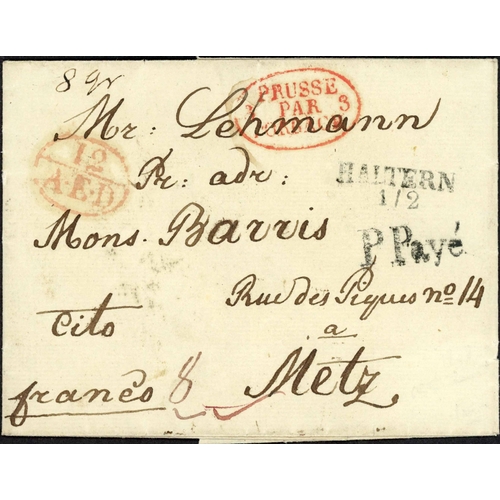 8 gr
PRUSSE
3 PAR 3
Mr: Lehmann
12
A.E.D
Pr: adr:
HALTERN
1/2
Mons. Barris
P.Payé
Rue des Piques no 14
cito
a
franco 8
Metz